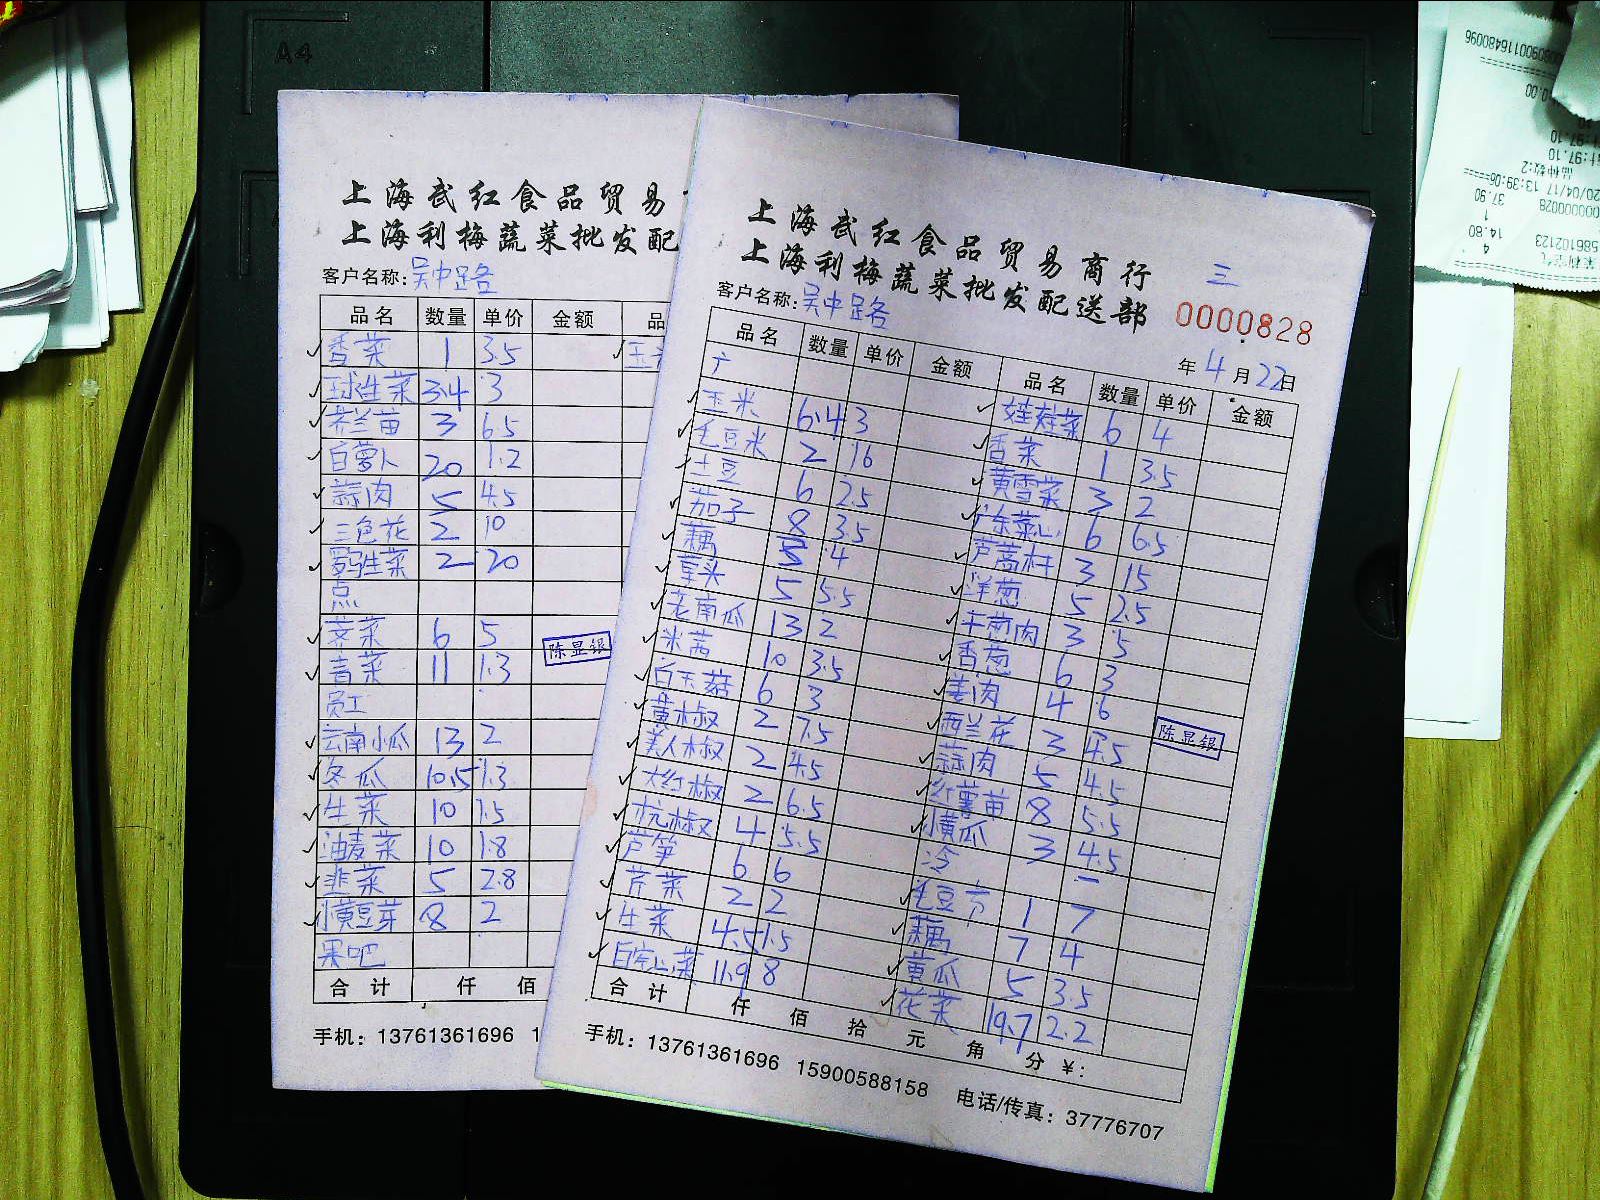 A4
上海武红食品贸易
上海利梅蔬菜批发配
客户名称:吴中路
品名 数量 单价 金额 品
香菜 1 3.5
球生菜 3.4 3
芥兰苗 3 6.5
白萝卜 20 1.2
蒜肉 5 4.5
三色花 2 10
罗马生菜 2 20
点
荠菜 6 5
陈显银
青菜 11 1.3
员工
云南小瓜 13 2
冬瓜 10.5 1.3
生菜 10 1.5
油麦菜 10 1.8
韭菜 5 2.8
小黄豆芽 8 2
果吧
合计 仟 佰
手机: 13761361696 1
上海武红食品贸易商行
上海利梅蔬菜批发配送部
三
0000828
客户名称:吴中路
年4月22日
品名 数量 单价 金额 品名 数量 单价 金额
玉米 6.4 3 娃娃菜 6 4
毛豆米 2 16 香菜 1 3.5
土豆 6 2.5 黄雪菜 3 2
茄子 8 3.5 广东菜心 6 6.5
藕 5 4 芦蒿杆 3 15
芋头 5 5.5 洋葱 5 2.5
老南瓜 13 2 3 5
米苋 10 3.5 香葱 6 3
白玉菇 6 3 姜肉 4 6
黄椒 2 7.5 西兰花 3 4.5
美人椒 2 4.5 蒜肉 5 4.5
大红椒 2 6.5 红薯苗 8 5.5
杭椒 4 5.5 小黄瓜 3 4.5
芦笋 6 6 冷
芹菜 2 2 毛豆 1 7
生菜 4.5 1.5 藕 7 4
11.9 8 黄瓜 5 3.5
花菜 19.7 2.2
陈显银
合计 仟 佰 拾 元 角 分 ¥:
手机: 13761361696 15900588158 电话/传真: 37776707
00900116480096
0.00
计:97.10
97.10
品种数:2
20/04/17 13:39:06
37.90
1
14.80
4
586102123